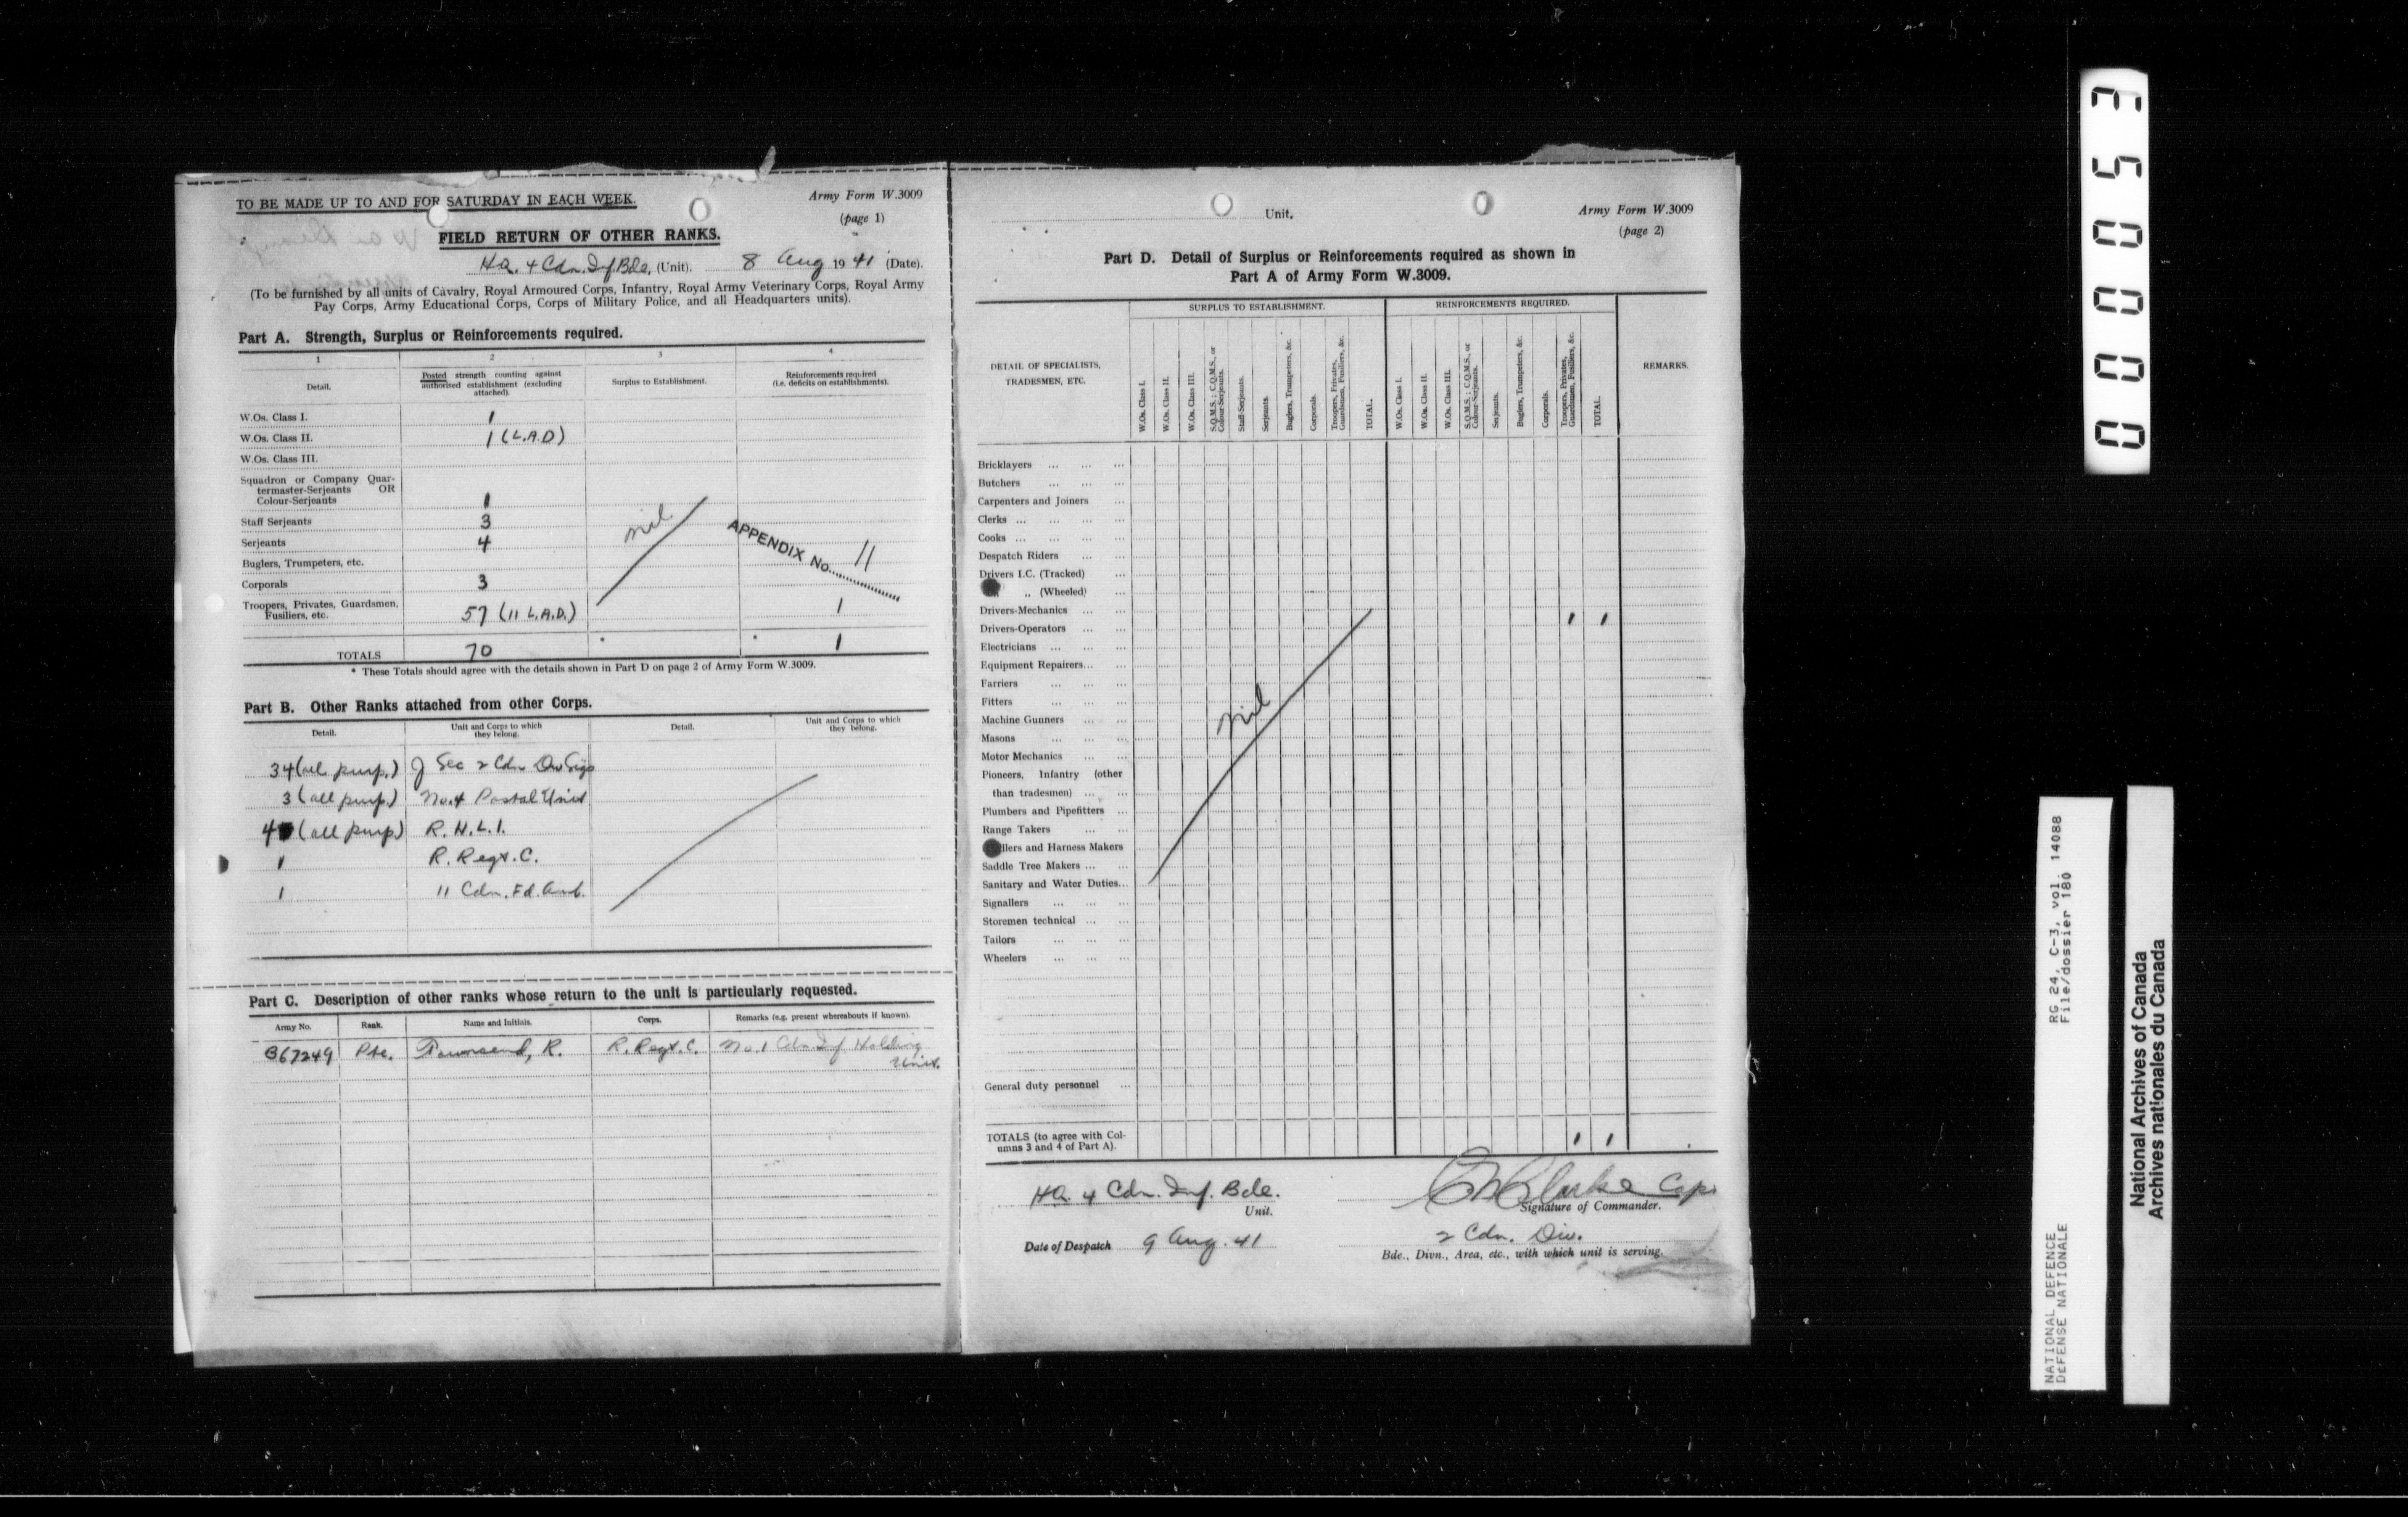 TO BE MADE UP TO AND FOR SATURDAY IN EACH WEEK.
Army Form W.3009
(page 1)
FIELD RETURN OF OTHER RANKS.
HQ. 4 Cdn. Inf. Bde. (Unit). 8 Aug 1941 (Date).
(To be furnished by all units of Cavalry, Royal Armoured Corps, Infantry, Royal Army Veterinary Corps, Royal Army
Pay Corps, Army Educational Corps, Corps of Military Police, and all Headquarters units).
Part A. Strength, Surplus or Reinforcements required.
1 2 3 4
Detail.
Posted strength counting against
authorised establishment (excluding
attached).
Surplus to Establishment.
Reinforcements required
(i.e. deficits on establishments).
W.Os. Class I. 1
W.Os. Class II. 1 (L.A.D)
W.Os. Class III.
Squadron or Company Quar-
termaster-Serjeants OR
Colour-Serjeants 1
Staff Serjeants 3
Serjeants 4
Buglers, Trumpeters, etc.
Corporals 3
Troopers, Privates, Guardsmen,
Fusiliers, etc. 57 (11 L.A.D.) 1
nil
APPENDIX No. 11
TOTALS 70 * * 1
* These Totals should agree with the details shown in Part D on page 2 of Army Form W.3009.
Part B. Other Ranks attached from other Corps.
Detail.
Unit and Corps to which
they belong.
Detail.
Unit and Corps to which
they belong.
34 (all purp.) J Sec 2 Cdn Div Sigs
3 (all purp.) No.4 Postal Unit
4 (all purp.) R.H.L.I.
1 R. Regt. C.
1 11 Cdn. Fd. Amb.
Part C. Description of other ranks whose return to the unit is particularly requested.
Army No. Rank. Name and Initials. Corps. Remarks (e.g. present whereabouts if known).
B67249 Pte. Townsend, R. R. Regt. C. No.1 Cdn Inf Holding
Unit.
Unit.
Army Form W.3009
(page 2)
Part D. Detail of Surplus or Reinforcements required as shown in
Part A of Army Form W.3009.
DETAIL OF SPECIALISTS,
TRADESMEN, ETC.
SURPLUS TO ESTABLISHMENT.
REINFORCEMENTS REQUIRED.
REMARKS.
W.Os. Class I.
W.Os. Class II.
W.Os. Class III.
S.Q.M.S.; C.Q.M.S., or
Colour-Serjeants.
Staff-Serjeants.
Serjeants.
Buglers, Trumpeters, &c.
Corporals.
Troopers, Privates,
Guardsmen, Fusiliers, &c.
TOTAL.
W.Os. Class I.
W.Os. Class II.
W.Os. Class III.
S.Q.M.S.; C.Q.M.S., or
Colour-Serjeants.
Serjeants.
Buglers, Trumpeters, &c.
Corporals.
Troopers, Privates,
Guardsmen, Fusiliers, &c.
TOTAL.
Bricklayers
Butchers
Carpenters and Joiners
Clerks
Cooks
Despatch Riders
Drivers I.C. (Tracked)
„ (Wheeled)
Drivers-Mechanics 1 1
Drivers-Operators
Electricians
Equipment Repairers
Farriers
Fitters
Machine Gunners
Masons
Motor Mechanics
Pioneers, Infantry (other
than tradesmen)
Plumbers and Pipefitters
Range Takers
llers and Harness Makers
Saddle Tree Makers
Sanitary and Water Duties
Signallers
Storemen technical
Tailors
Wheelers
nil
General duty personnel
TOTALS (to agree with Col-
umns 3 and 4 of Part A). 1 1
HQ. 4 Cdn. Inf. Bde.
Unit.
Clarke Cap
Signature of Commander.
Date of Despatch 9 Aug. 41
2 Cdn. Div.
Bde., Divn., Area, etc., with which unit is serving.
000053
NATIONAL DEFENCE RG 24, C-3, vol. 14088
DEFENSE NATIONALE File/dossier 180
National Archives of Canada
Archives nationales du Canada